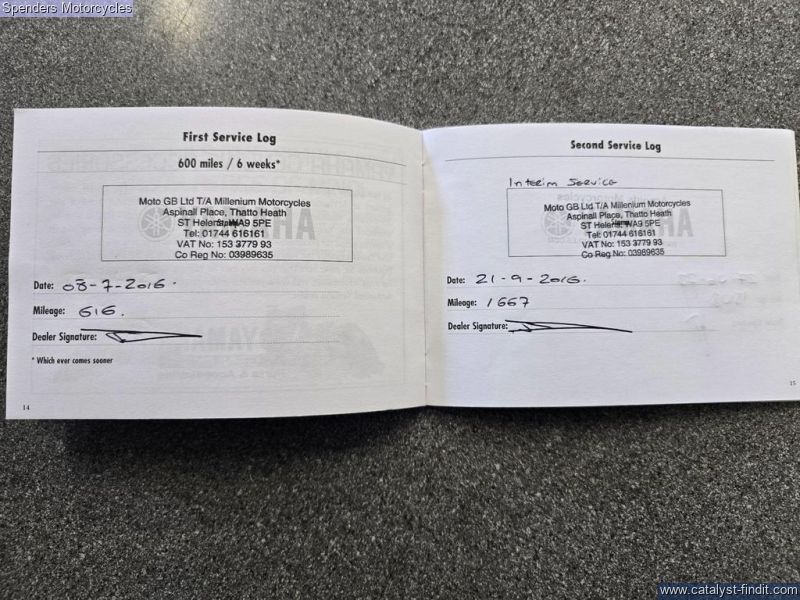 Spenders Motorcycles
First Service Log
600 miles / 6 weeks*
Moto GB Ltd T/A Millenium Motorcycles
Aspinall Place, Thatto Heath
ST Helens, WA9 5PE
Tel: 01744 616161
VAT No: 153 3779 93
Co Reg No: 03989635
Date: 08-7-2016.
Mileage: 616.
Dealer Signature:
* Which ever comes sooner
14
Second Service Log
Interim Service
Moto GB Ltd T/A Millenium Motorcycles
Aspinall Place, Thatto Heath
ST Helens, WA9 5PE
Tel: 01744 616161
VAT No: 153 3779 93
Co Reg No: 03989635
Date: 21-9-2016.
Mileage: 1667
Dealer Signature:
15
www.catalyst-findit.com